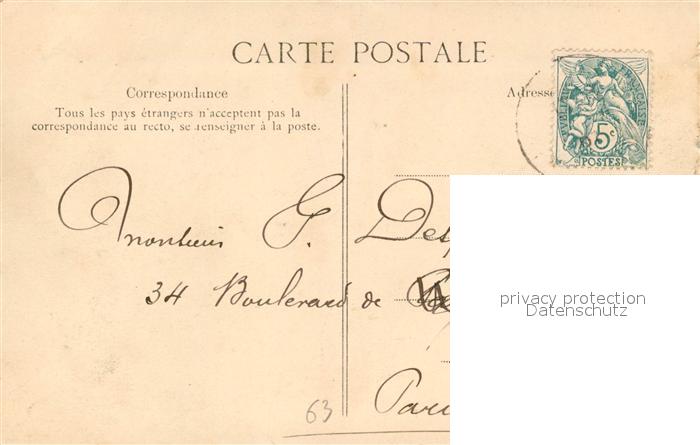 CARTE POSTALE
Correspondance
Tous les pays étrangers n'acceptent pas la
correspondance au recto, se renseigner à la poste.
Adresse
RÉPUBLIQUE FRANÇAISE
5c
POSTES
Monsieur G.
34 Boulevard de
63
privacy protection
Datenschutz